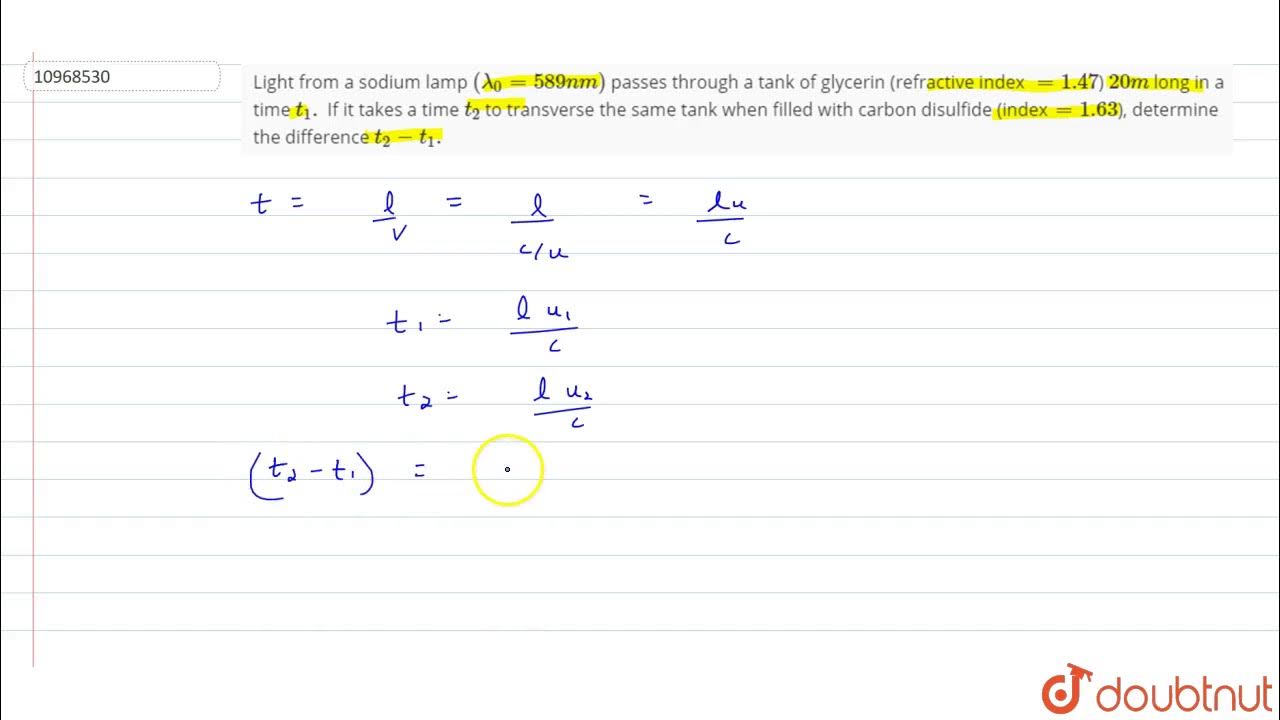 10968530
Light from a sodium lamp (λ₀ = 589nm) passes through a tank of glycerin (refractive index = 1.47) 20m long in a
time t₁. If it takes a time t₂ to transverse the same tank when filled with carbon disulfide (index = 1.63), determine
the difference t₂ − t₁.
t = l/v = l/(c/u) = lu/c
t₁ = l u₁/c
t₂ = l u₂/c
(t₂ − t₁) =
doubtnut